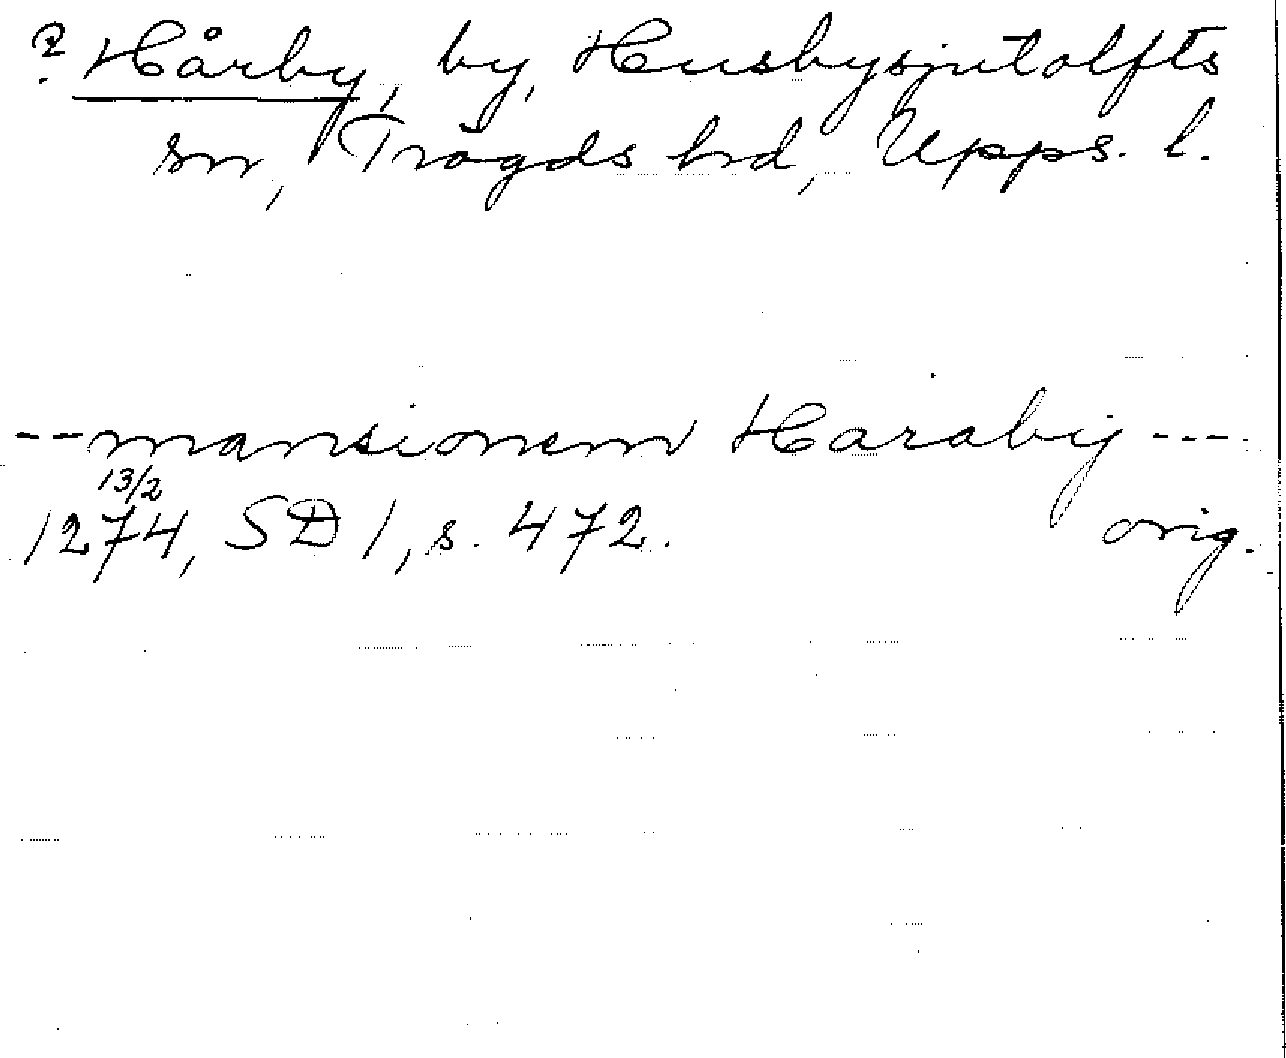 ? Hårby, by, Husbysjutolfts
sn, Trögds hd, Upps. l.
--mansionem Haraby ---
13/2
1274, SD 1, s. 472. orig.